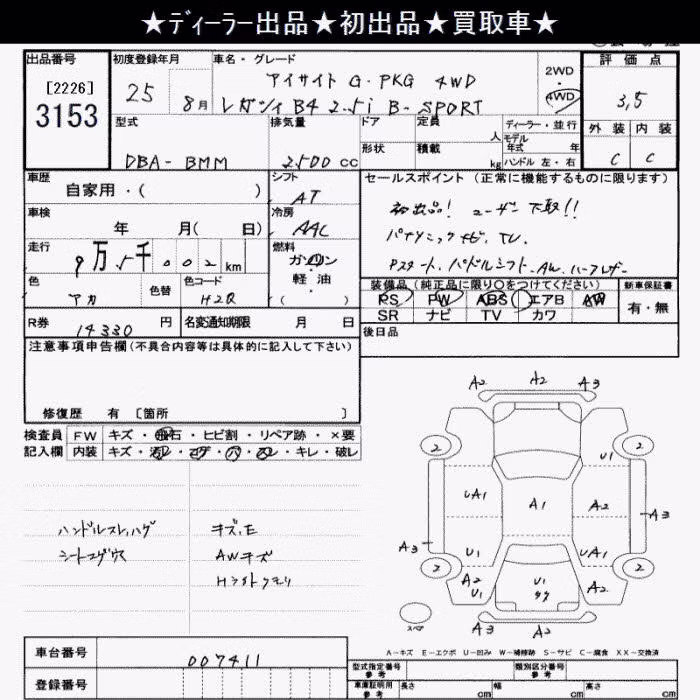 ★ディーラー出品★初出品★買取車★
出品番号
[2226]
3153
初度登録年月
25 8月
車名・グレード
アイサイト G・PKG 4WD
レガシィ B4 2.5i B-SPORT
2WD
・
4WD
評価点
3.5
外装 内装
C C
型式
DBA-BMM
排気量
2500 cc
ドア 定員 人
形状 積載 kg
ディーラー・並行
モデル年式 年
ハンドル 左・右
車歴
自家用・( )
シフト
AT
車検
年 月( 日)
冷房
AAC
走行
9万5千002km
燃料
ガソリン
軽油
( )
色
アカ
色替
色コード
H2Q
R券
14330円
名変通知期限 月 日
セールスポイント(正常に機能するものに限ります)
初出品! ユーザー下取!!
パナソニックナビ、TV、
Pスタート、パドルシフト、AW、ハーフレザー
装備品(純正品に限り○をつけてください)
PS PW ABS エアB AW
SR ナビ TV カワ
新車保証書
有・無
後日品
注意事項申告欄(不具合内容等は具体的に記入して下さい)
修復歴 有 [箇所 ]
検査員記入欄
FW キズ・飛石・ヒビ割・リペア跡・×要
内装 キズ・汚レ・コゲ・穴・スレ・キレ・破レ
ハンドルスレ、ハゲ
シートコゲ穴
キズ、E
AWキズ
Hライトクモリ
A2 A2 A3
2 2
U1
UA1 A1 A2
A3 A3
U1 UA1
2 2
A2 U1 U1 A2
スペア
A3 A2 A2
A-キズ E-エクボ U-凹み W-補修跡 S-サビ C-腐食 XX-交換済
車台番号
007411
登録番号
型式指定番号 参考
類別区分番号 参考
車庫証明用 参考
長さ cm 幅 cm 高さ cm